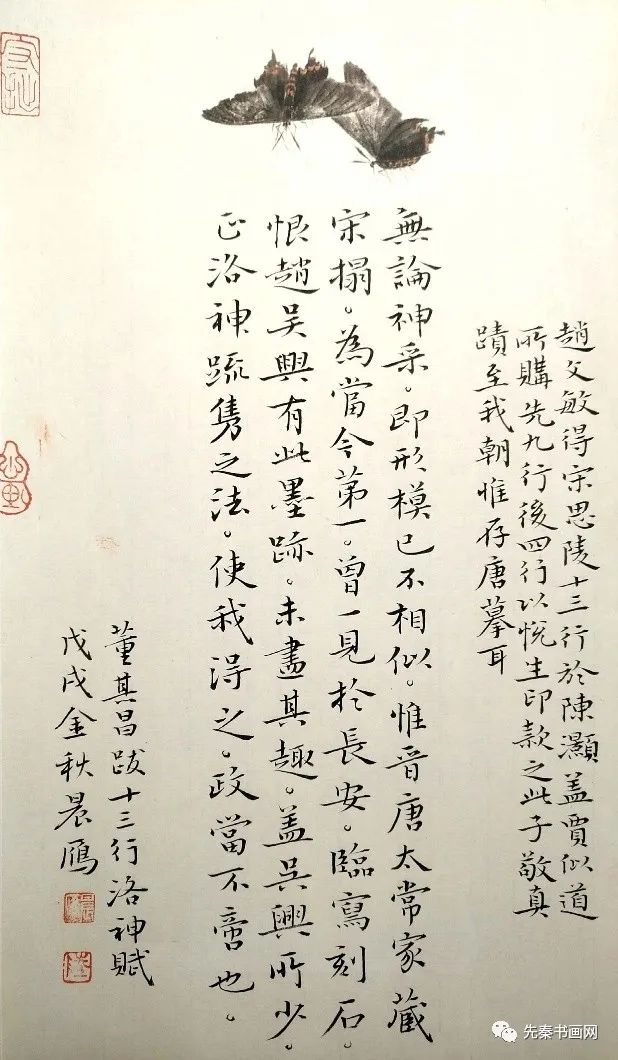 趙文敏得宋思陵十三行於陳灝盖賈似道
所購先九行後四行以悅生印款之此子敬真
蹟至我朝惟存唐摹耳
無論神采。即形模已不相似。惟晋唐太常家藏
宋搨。為當今第一。曾一見於長安。臨寫刻石。
恨趙吴興有此墨跡。未盡其趣。盖吴興所少。
正洛神疏隽之法。使我得之。政當不啻也。
董其昌跋十三行洛神賦
戊戌金秋晨鴈
先秦书画网